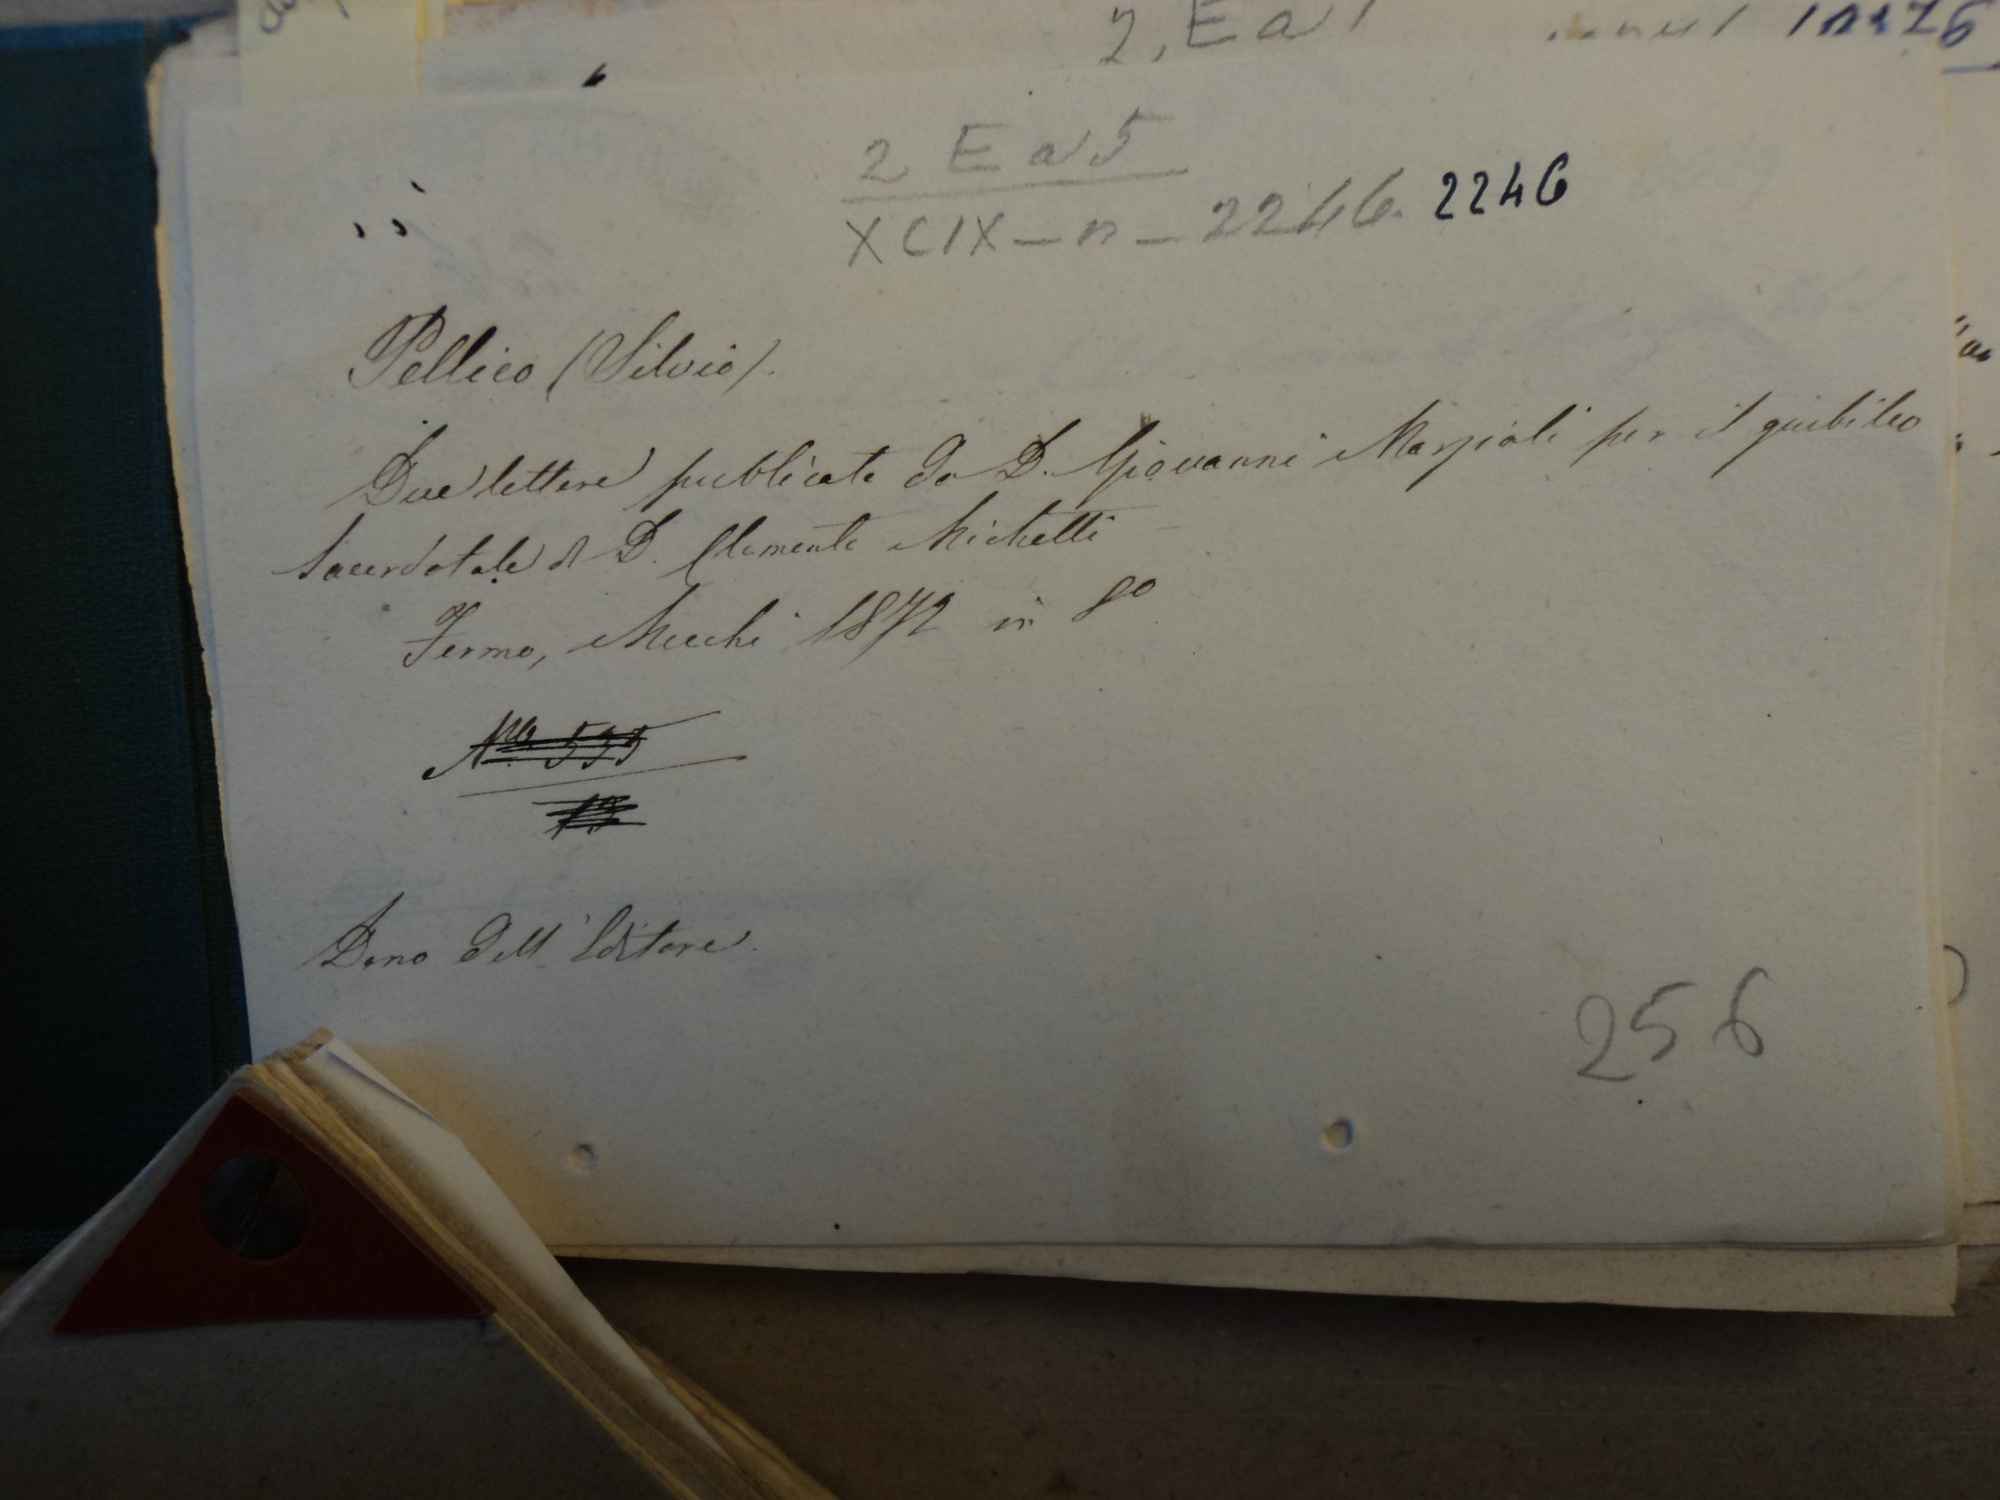 2, Ea1
2 Ea5
XCIX - n - 2246. 2246
Pellico (Silvio).
Due lettere publicate da D. Giovanni Marziali per il giubileo
Sacerdotale di D. Clemente Michetti
Fermo, Mecchi 1872 in 8º
Nº 535
Dono dell'Editore.
256